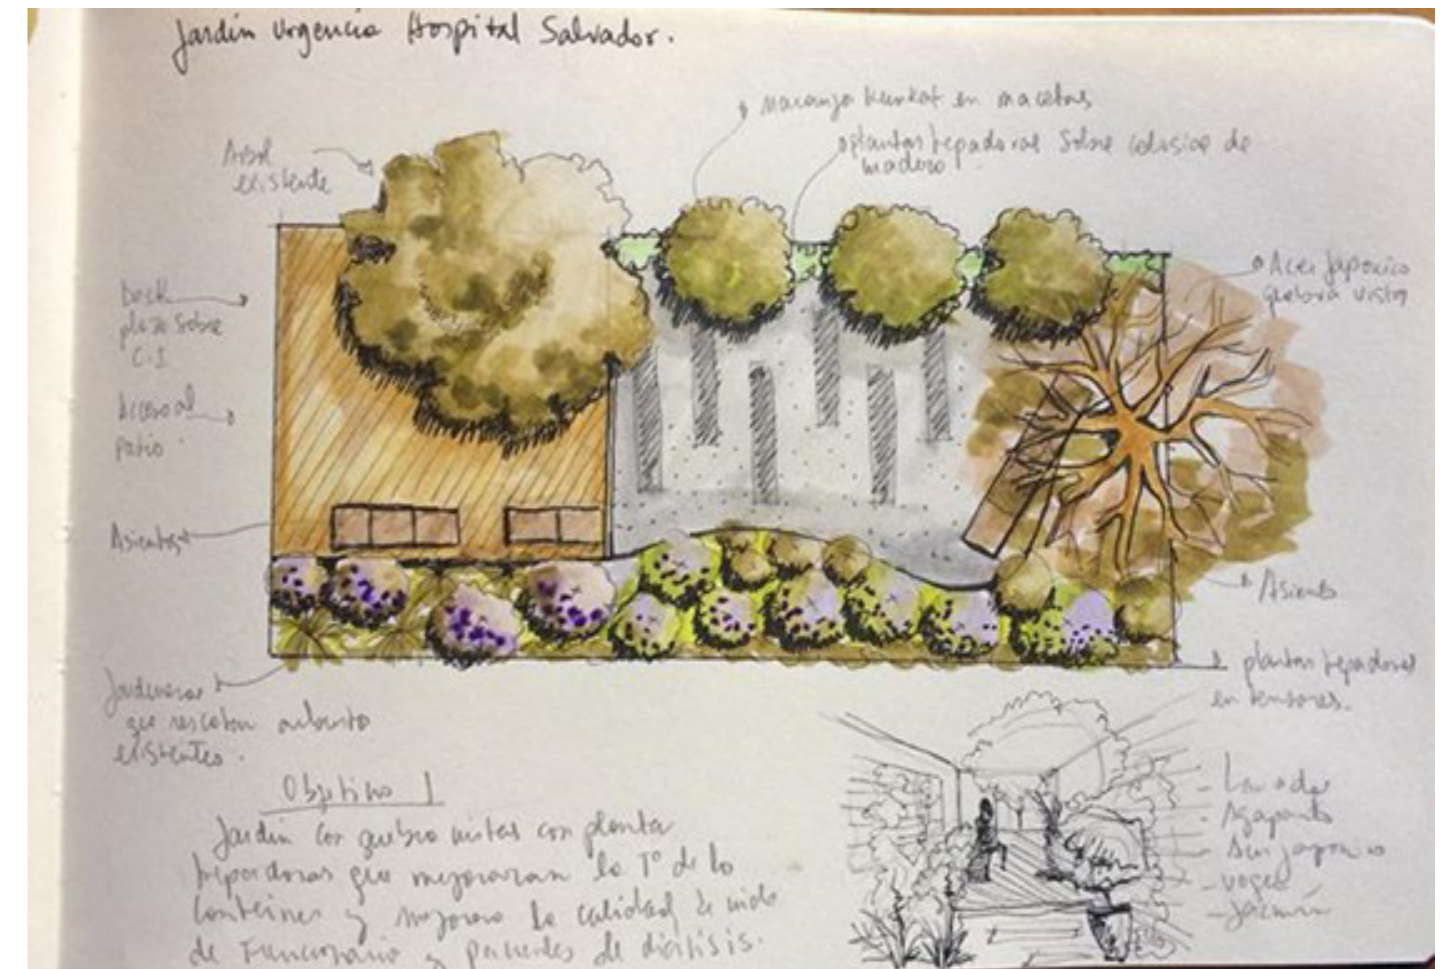 Jardin Urgencia Hospital Salvador.
naranjo kunkat en macetas
plantas trepadoras sobre celosias de
madera.
Arbol
existente
Acer Japonico
quebra vista
Deck
plaza sobre
C.I
Acceso al
patio
Asientos
Asiento
plantas trepadoras
en tensores.
Jardineras
que rescatan arbusto
existentes.
Objetivo 1
Jardin con quebra vistas con planta
trepadoras que mejoraran la Tº de lo
Conteiner y mejorara la calidad de vida
de Funcionario y pacientes de dialisis.
- Lavanda
- Agapanto
- Acer Japonico
- Jazmin